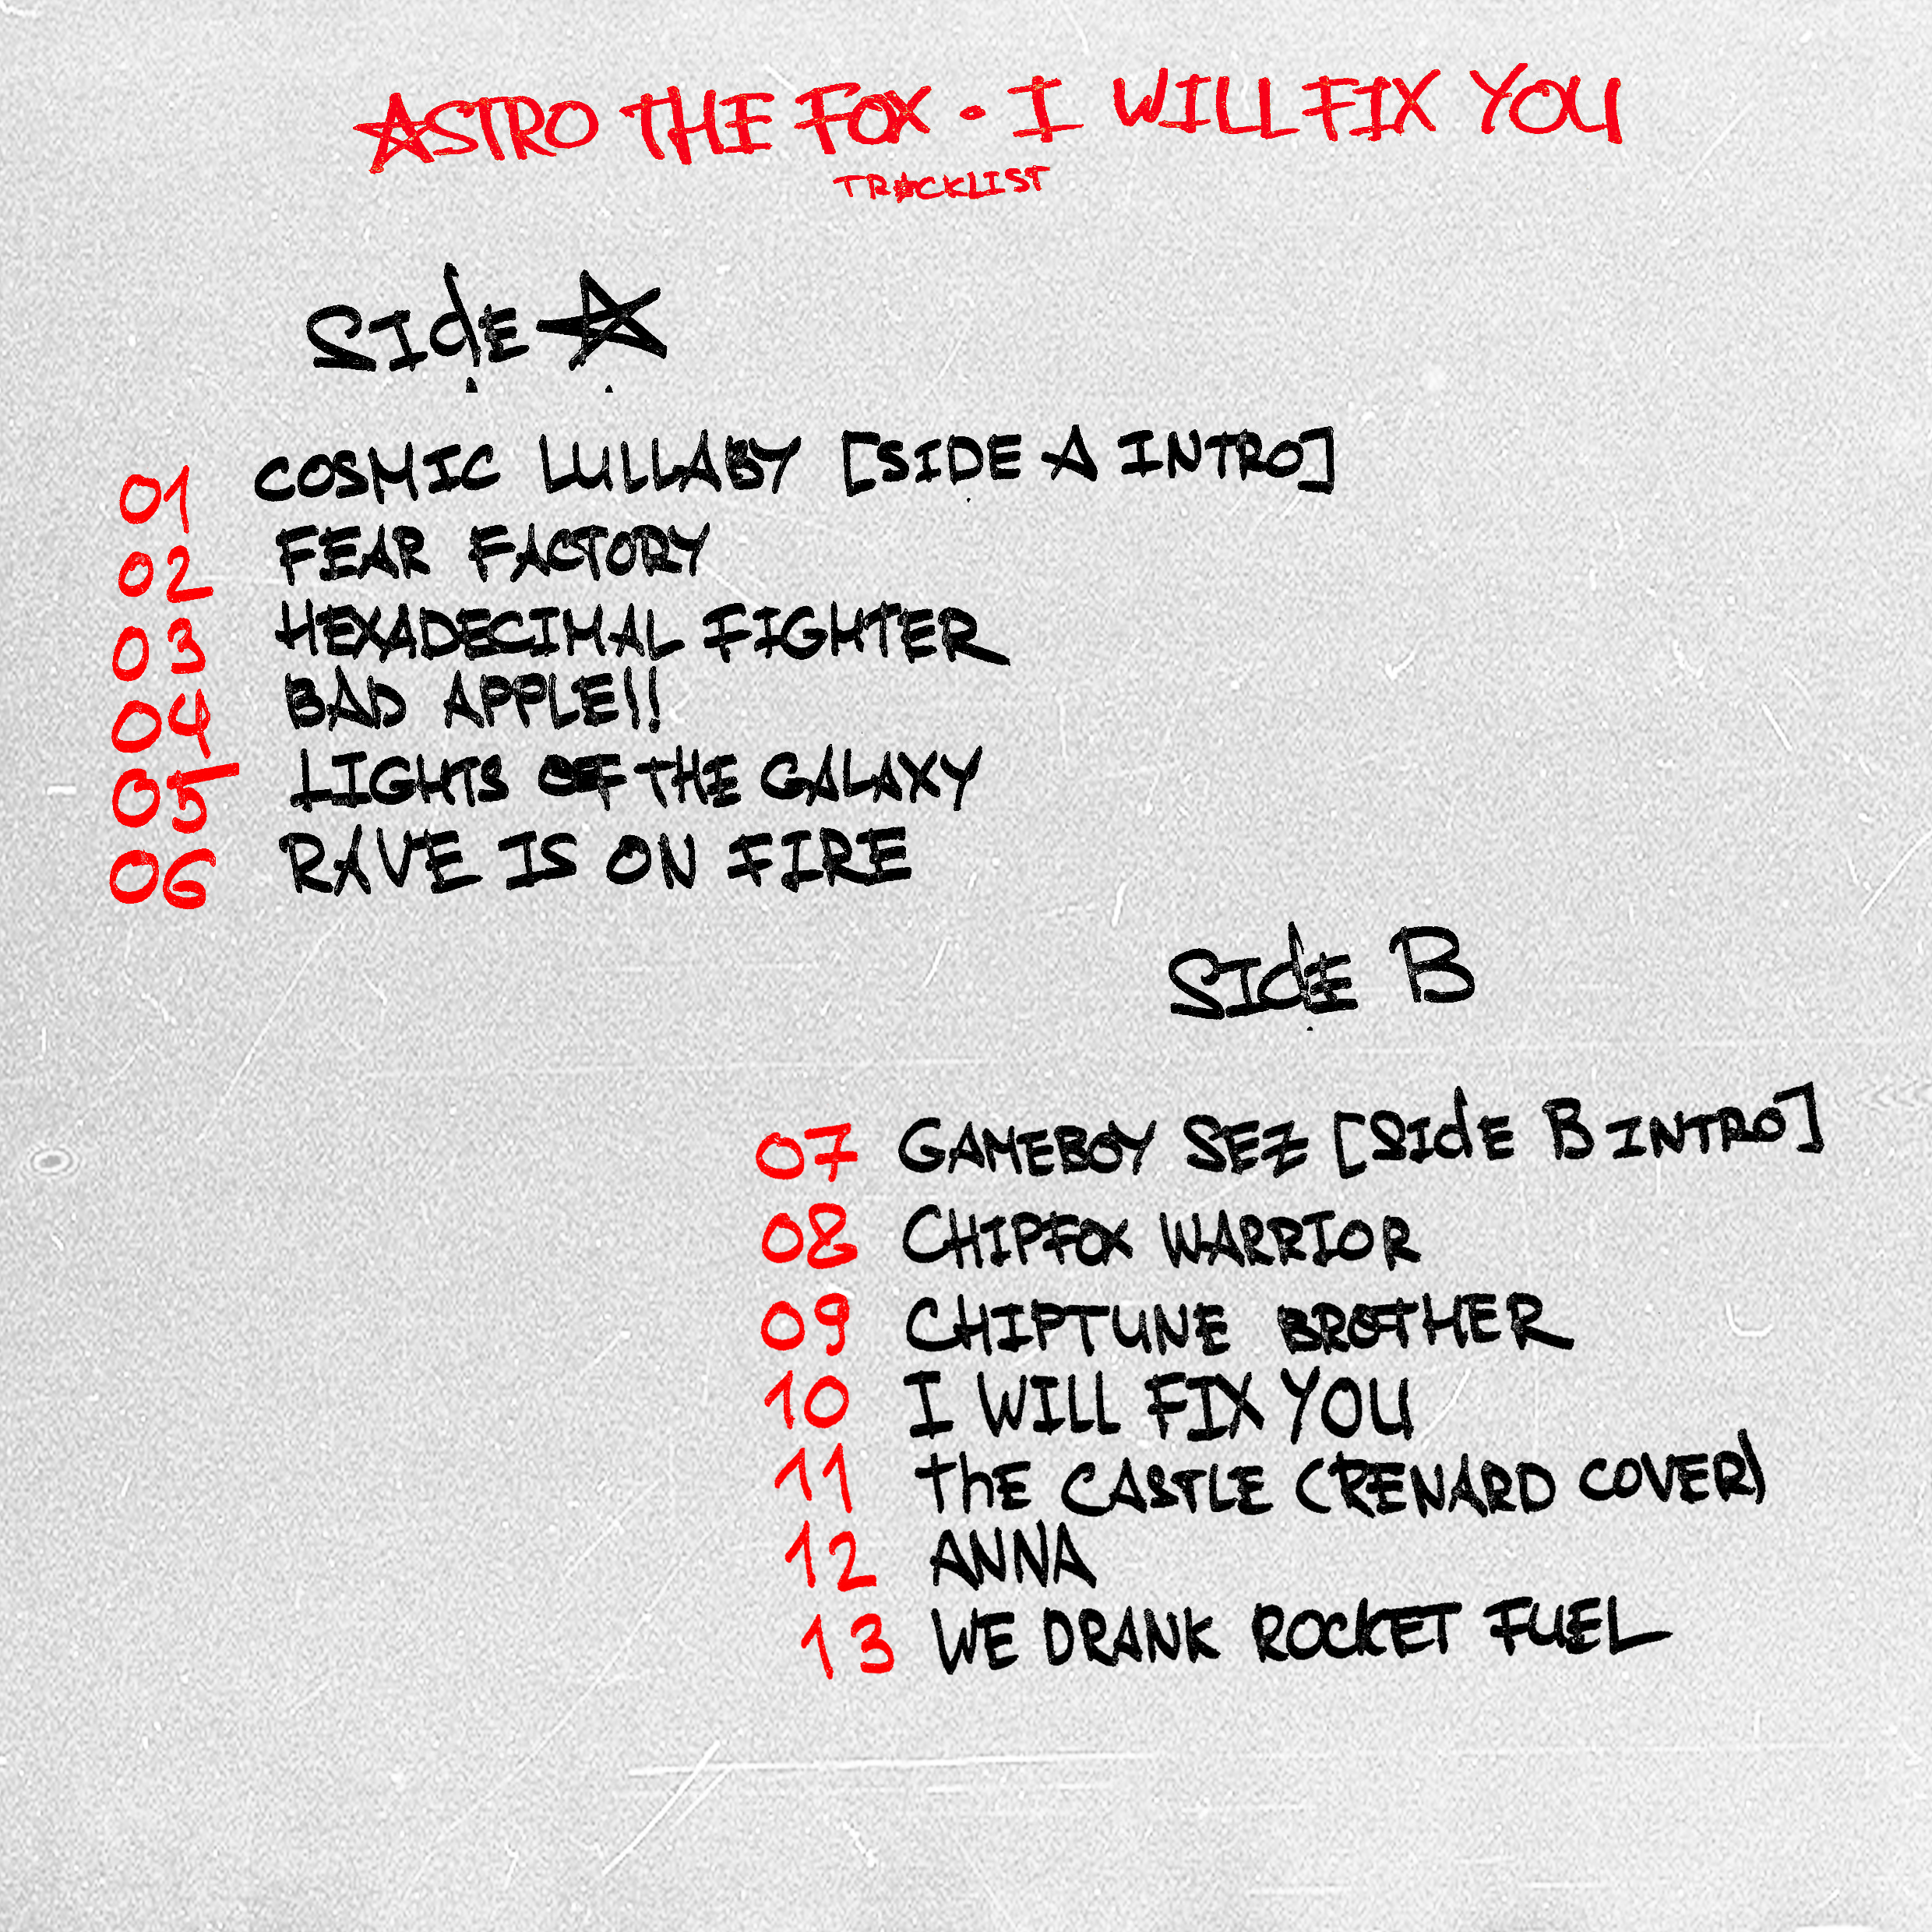 ASTRO THE FOX • I WILL FIX YOU
TRACKLIST
SIdE A
01 COSMIC LULLABY [SIDE A INTRO]
02 FEAR FACTORY
03 HEXADECIMAL FIGHTER
04 BAD APPLE!!
05 LIGHTS OF THE GALAXY
06 RAVE IS ON FIRE
SIdE B
07 GAMEBOY SEZ [SIdE B INTRO]
08 CHIPFOX WARRIOR
09 CHIPTUNE BROTHER
10 I WILL FIX YOU
11 ThE CASTLE (RENARD COVER)
12 ANNA
13 WE DRANK ROCKET FUEL